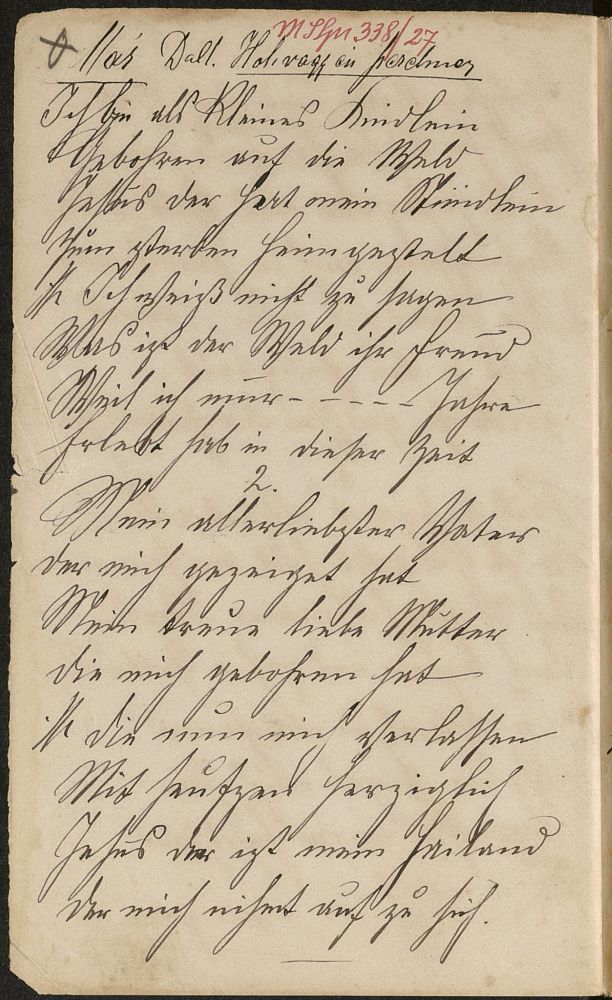 M S Gu 338/27
Más Dall.
Ich bin als kleines Kindlein
Gebohren auf die Weld
Jessus der hat mein Stündlein
Zum sterben heimgestelt
Ich weiß nicht zu sagen
Was ist der Weld ihr Freud
Weil ich nur - - - - - Jahre
Erlebt hab in dieser Zeit
2.
Mein allerliebster Vater
der mich gezeiget hat
Mein treue liebe Mutter
die mich gebohren hat
die nun mich verlassen
Mit seufzen herziglich
Jehsus der ist mein Heiland
der mich nihmt auf zu sich.